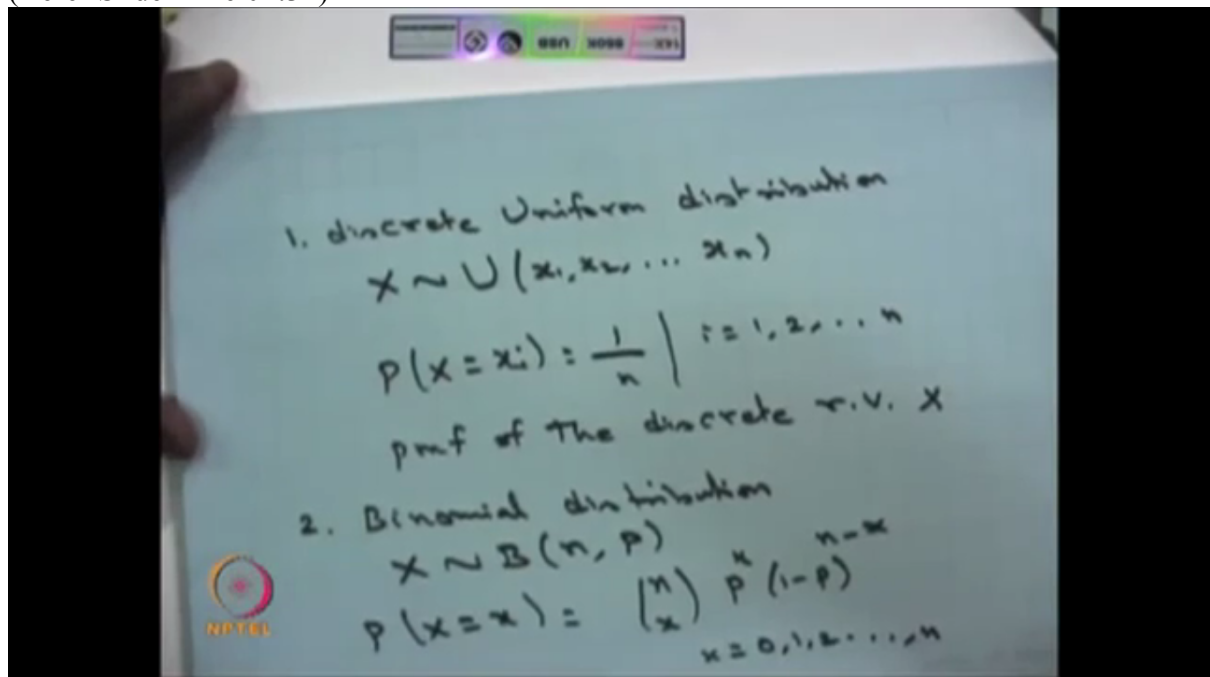 USB
1. discrete Uniform distribution
X ~ U (x1, x2, ... xn)
P(X = xi) = 1/n | i = 1, 2, .. n
pmf of the discrete r.v. X
2. Binomial distribution
X ~ B(n, P)
P(X = x) = (n x) p^x (1-p)^n-x
x = 0, 1, 2 ..., n
NPTEL